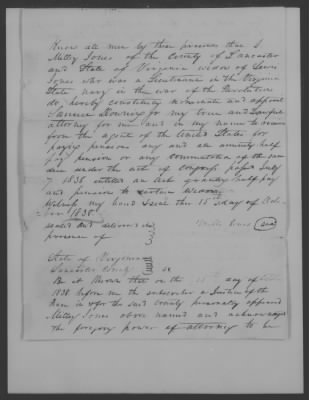 Know all men by these presents that I
Milley Jones of the County of Lancaster
and State of Virginia widow of Lewis
Jones who was a Lieutenant in the Virginia
State navy in the war of the Revolution
do, hereby constitute nominate and appoint
Samuel Downing for my true and lawful
attorney for me and in my name to
from the agent of the United States for
paying pensions any and all annuity half
pay pension or any commutation of the same
due under the act of Congress passed July
7 1838 entitled an Act granting half pay
and pension to certain widows
Witness my hand & seal this 15th day of
1838
sealed and delivered in
presence of
Milley Jones (seal)
State of Virginia
Lancaster County ss
Be it Known that on the day of
1838 before me the subscriber a Justice of the
Peace in & for the said County personally appeared
Milley Jones above named and acknowledged
the foregoing power of attorney to be